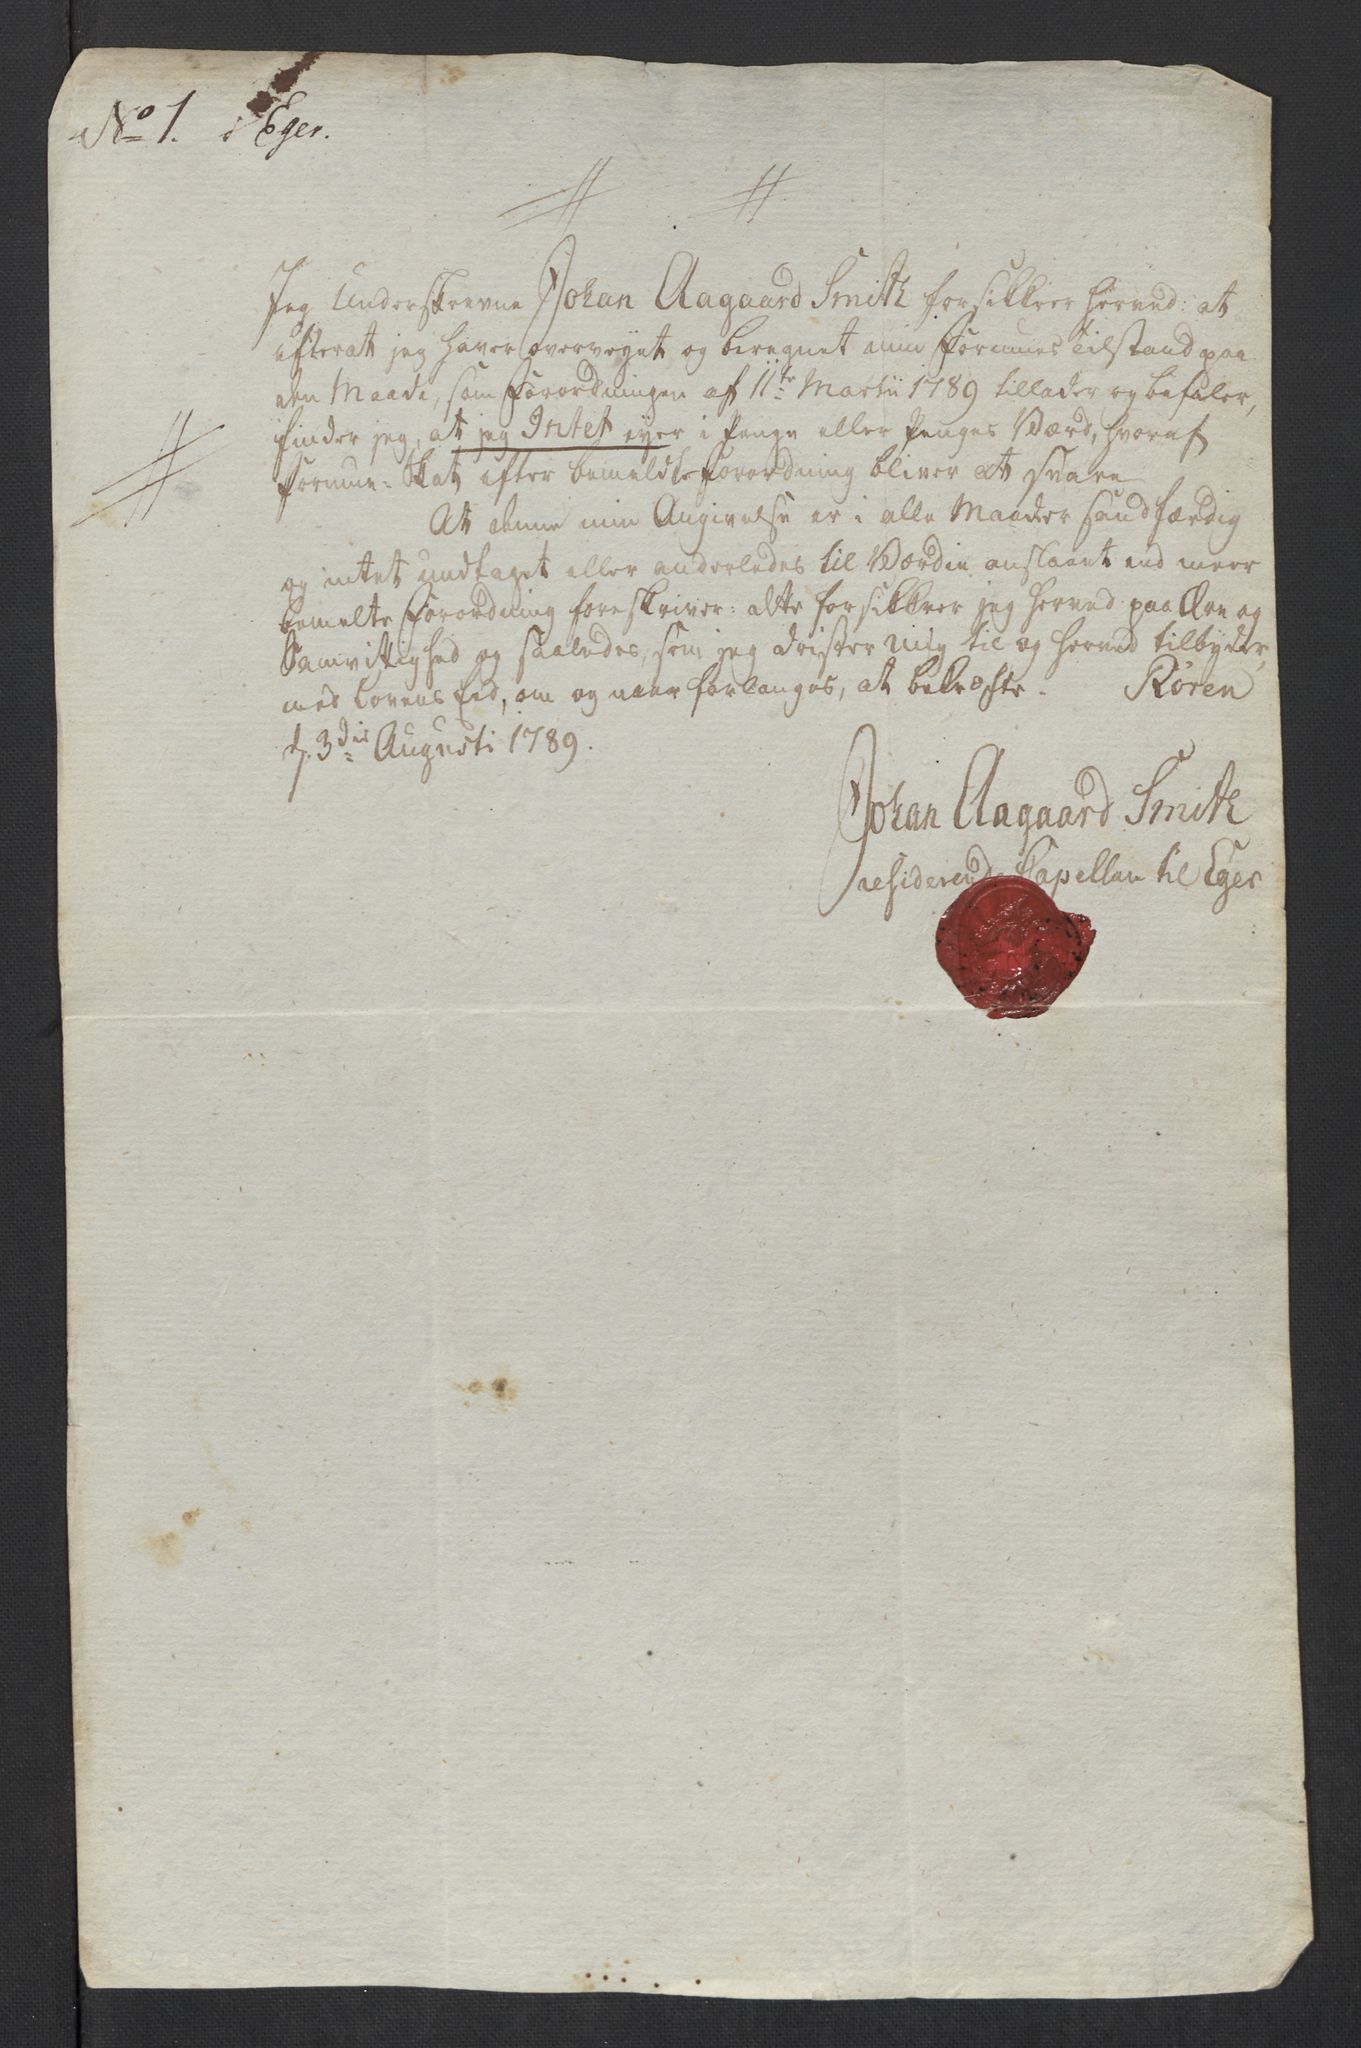 No 1. Eger.
Jeg Underskrevne Johan Aagaard Smith forsikkrer herved: at
efterat jeg haver overveyet og beregnet min Formues Tilstand paa
den Maade, som Forordningen af 11te Martii 1789 tillader og befaler,
finder jeg, at jeg Intet eyer i Penge eller Penges Værd, hvoraf
Formue-Skat efter bemeldte Forordning bliver at svare
At denne min Angivelse er i alle Maader sandfærdig
og intet undtaget eller anderledes til Værdie anslaaet end meer
bemelte Forordning foreskriver: alt forsikkrer jeg herved paa Ære og
Samvittighed og saaledes, som jeg drister mig til og herved tilbyder,
med Lovens Eed, om og naar forlanges, at bekræfte. Røren
d. 3die Augusti 1789.
Johan Aagaard Smith
residerende Capellan til Eger